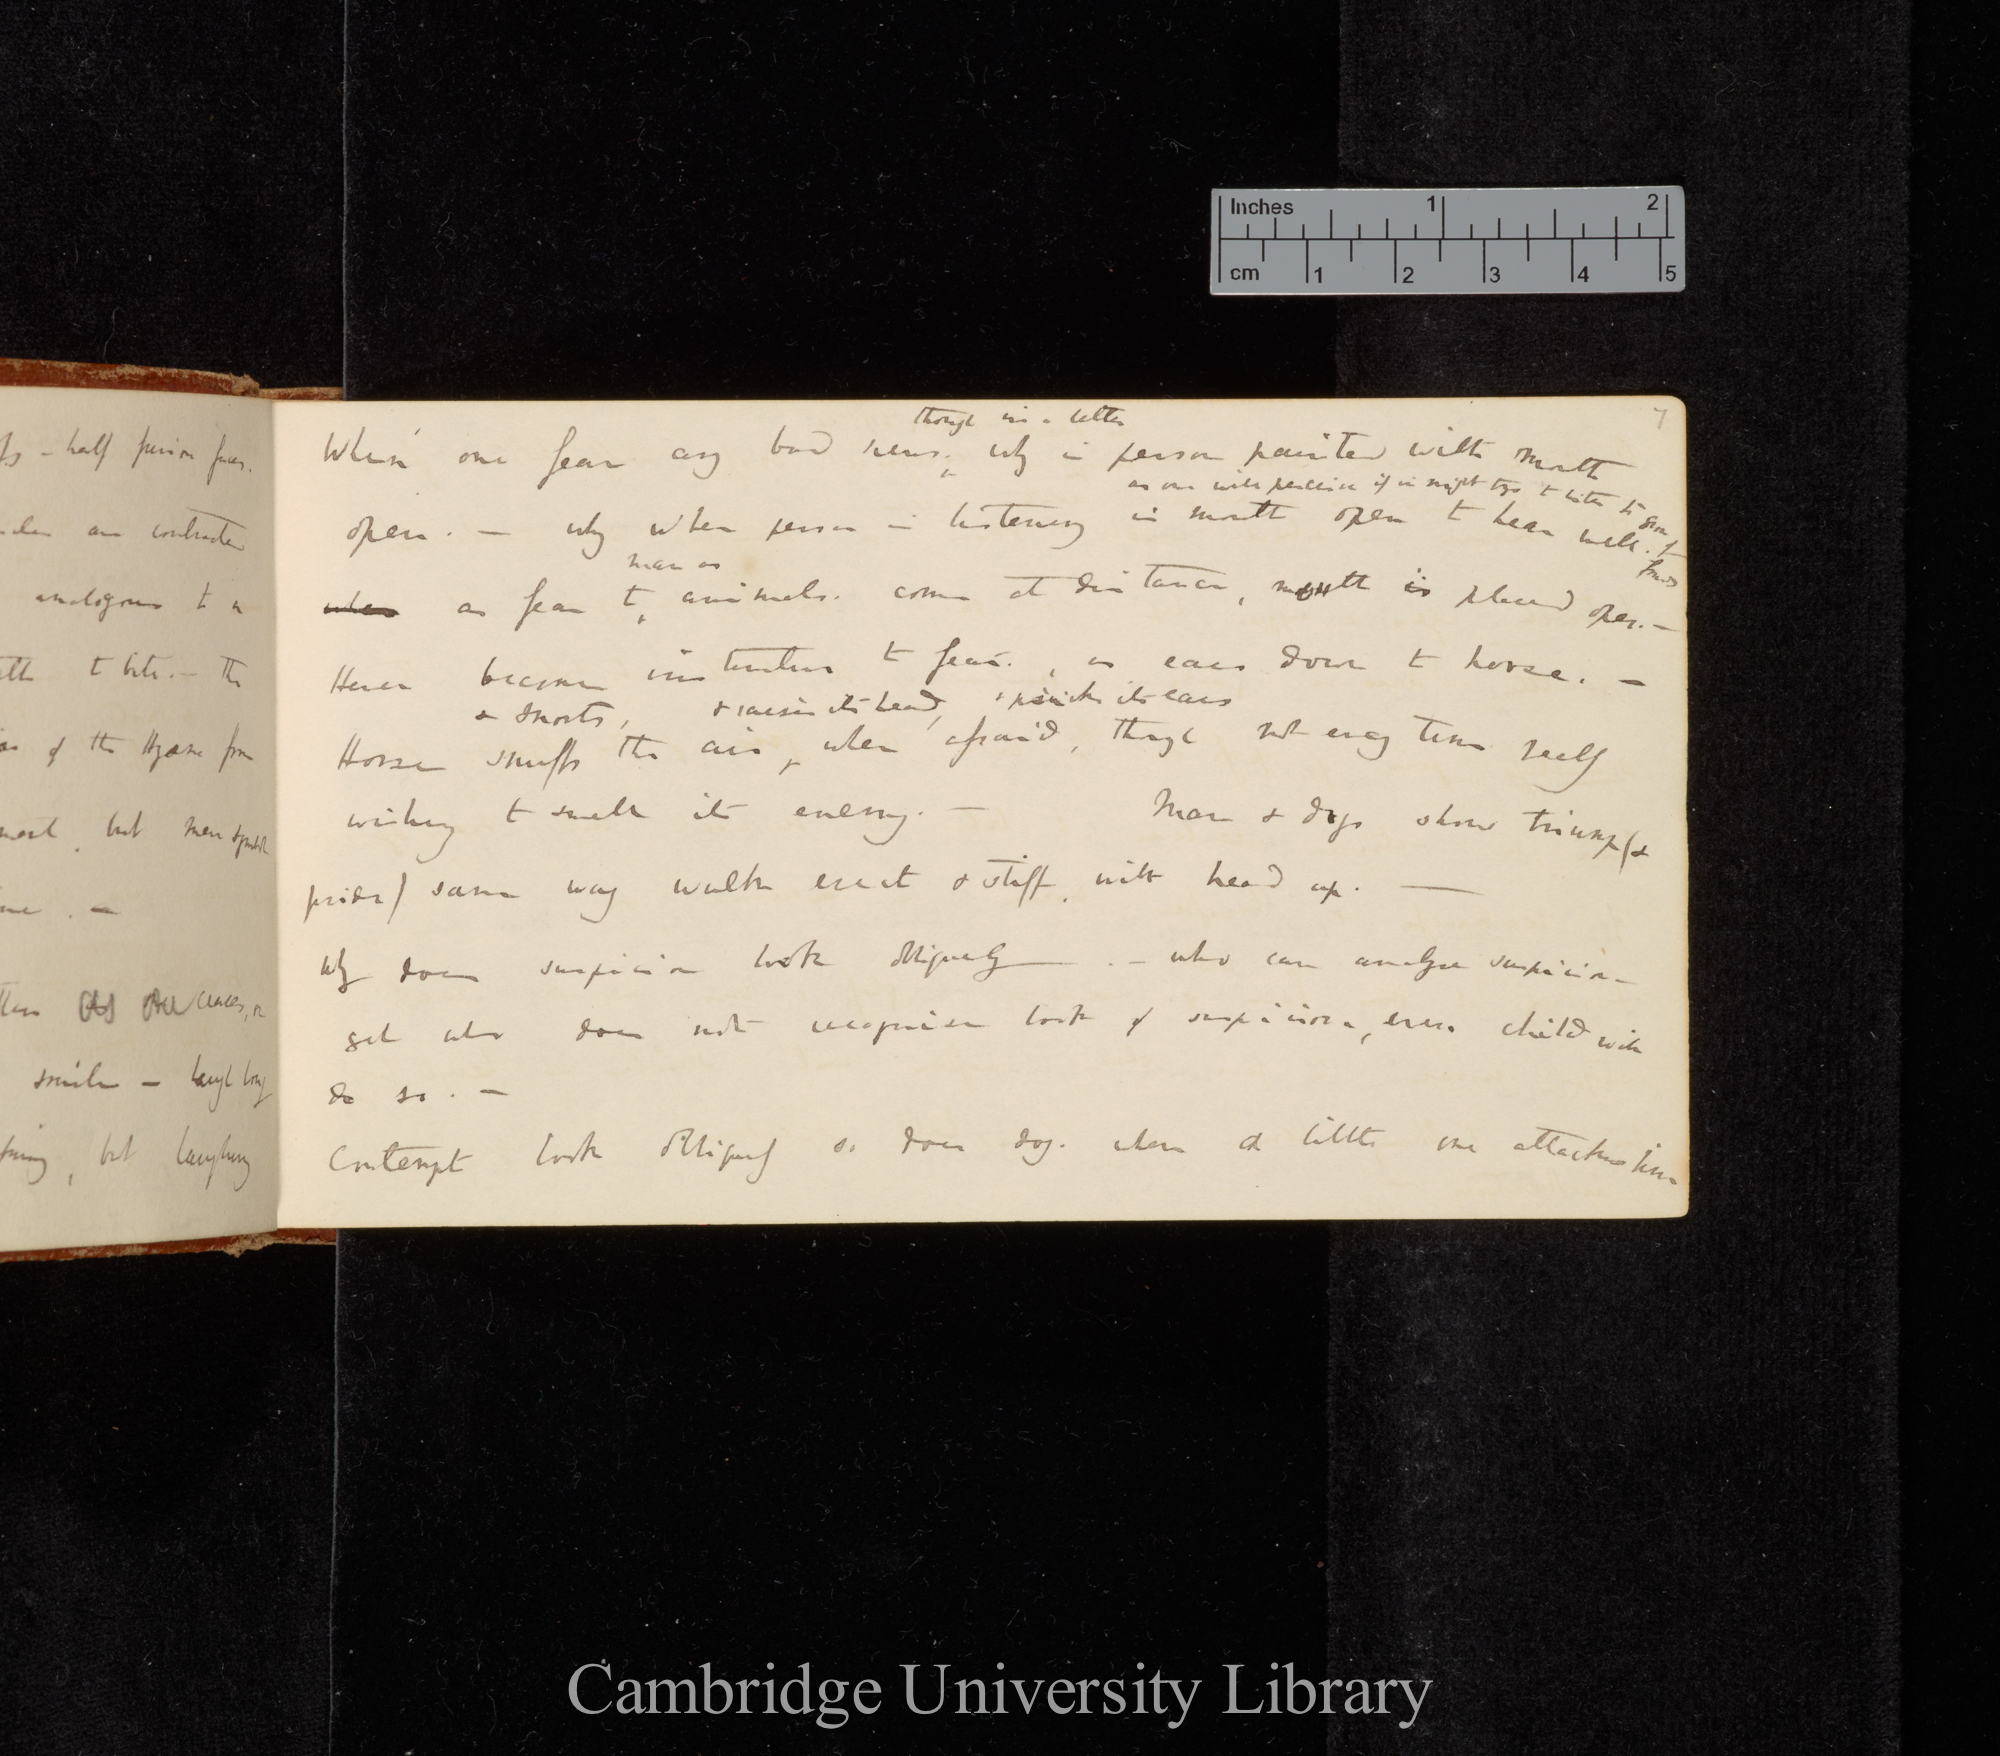 Inches 1 2
cm 1 2 3 4 5
7
half person faces.
are contracted
analogous to a
to bite. — the
of the Hyæna from
but man & [
smile — laugh long
but laughing
though in a letter
When one fear any bad news, why is person painted with mouth
as one will perceive if in night try to listen to
open. — why when person is listening is mouth open to hear well.
man as
when as fear to animals. come at distance, mouth is placed open. —
Hence become instinctive to fear. , as ears down to horse. —
& snorts, & raises its head, & pricks its ears
Horse snuffs the air, when afraid, though not every time really
wishing to smell its enemy. — Man & dogs show triumph (&
pride) same way walk erect & stiff, with head up. —
Why does suspicion look obliquely. — who can analyse suspicion —
yet who does not recognise look of suspicion, even child will
do so. —
Contempt look obliquely so does dog. when a little one attacks him
Cambridge University Library